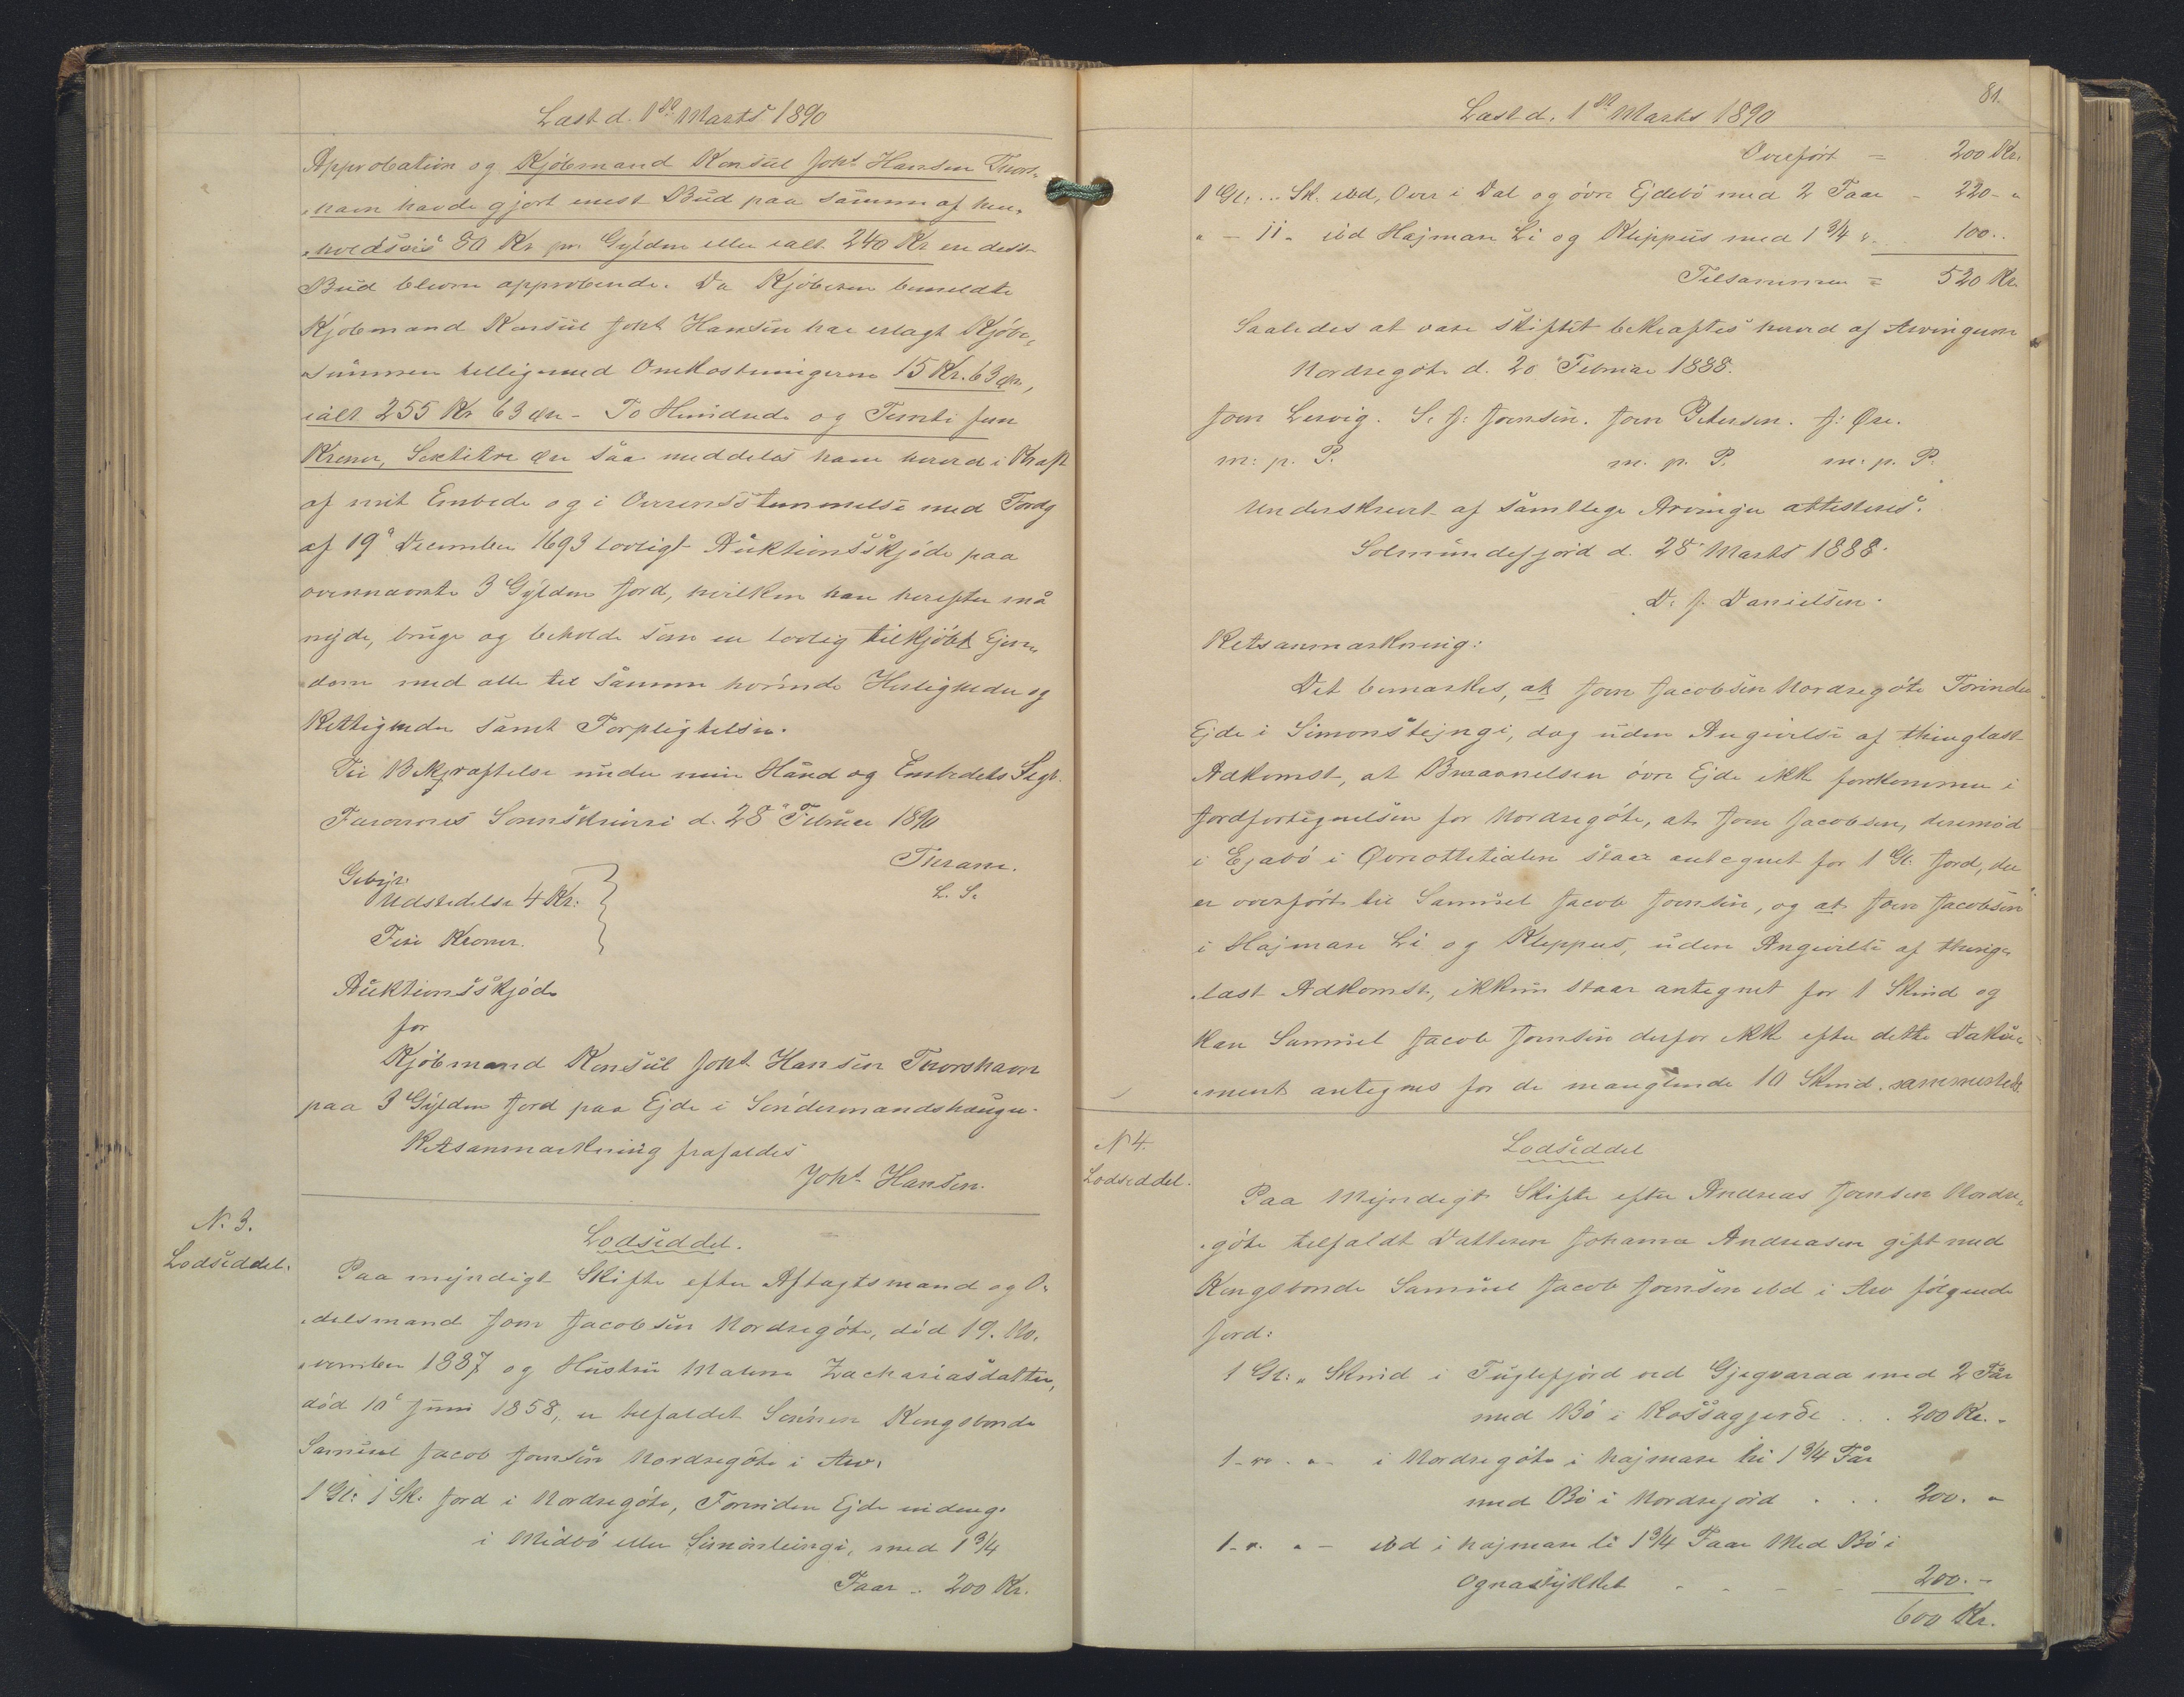 Læst d. 1ste Marts 1890
Approbation og Kjøbmand Konsul Joht Hansen Thors-
havn havde gjort mest Bud paa samme af hen-
holdsvis 80 Kr pr Gylden eller ialt 240 Kr en dett
Bud bleven approberede. Da Kjøberen bemeldte
Kjøbmand Konsul Joht Hansen har erlagt Kjøbe-
summen tilligemed Omkostningerne 15 Kr. 63 Øre,
ialt 255 Kr 63 Øre - To Hundrede og Femti fem
Kroner, Sextitre Øre saa meddeles ham herved i Kraft
af mit Embede og i Overensstemmelse med Fordg
af 19de December 1693 lovligt Auktionsskjøde paa
ovennævnte 3 Gylden Jord, hvilken han herefter må
nyde, bruge og beholde som en lovlig tilkjøbt Ejen-
dom med alle til samme hørende Herligheder og
Rettigheder samt Forpligtelser.
Til Bekræftelse under min Hånd og Embedets Segl.
Færøernes Sorenskriveri d. 28de Februar 1890
Theram.
L. S.
Gebyr:
Udstedelse 4 Kr:
Fire Kroner.
Auktionsskjøde
for
Kjøbmand Konsul Joht Hansen Thorshavn
paa 3 Gylden Jord paa Ejde i Søndermandshaugen.
Retsanmærkning frafaldes
Joht Hansen.
N. 3.
Lodseddel.
Lodseddel.
Paa myndigt Skifte efter Aftægtsmand og O-
delsmand Joen Jacobsen Nordregøte, død 19. No-
vember 1887 og Hustru Malene Zachariasdatter,
død 10de Juni 1858, er tilfaldet Sønnen Kongsbonde
Samuel Jacob Joensen Nordregøte i Arv.
1 Gl: 1 Sk: Jord i Nordregøte, Forinden Ejde
i Midbø eller Simonteingi, med 1 3/4
Faar .. 200 Kr.
81.
Læst d. 1ste Marts 1890
Overført = 200 Kr.
1 Gl. ... Sk. ibd, Over i Dal og øvre Ejdebø med 2 Faar - 220 - "
" - 11 - ibd Hajmare Li og Kleppus med 1 3/4 ". 100 ..
Tilsammen = 520 Kr
Saaledes at være skiftet bekræftes herved af Arvingerne
Nordregøte d. 20 Februar 1888.
Joen Lervig. S. J. Joensen. Joen Petersen. J: Øre.
m: p. P. m. p. P. m: p. P.
Underskrevet af samtlige Arvinger attesteres.
Solmundefjord d. 28 Marts 1888.
D. J. Danielsen.
Retsanmærkning:
Det bemærkes, at Joen Jacobsen Nordregøte Forinden
Ejde i Simonstejngi, dog uden Angivelse af thinglæst
Adkomst, at Benævnelsen øvre Ejde ikke forekommer i
Jordfortegnelsen for Nordregøte, at Joen Jacobsen, derimod
i Ejabø i Øvreattetialen staar antegnet for 1 Gl. Jord, der
er overført til Samuel Jacob Joensen, og at Joen Jacobsen
i Hajmare Li og Kleppus, uden Angivelse af thing-
læst Adkomst, ikkun staar antegnet for 1 Skind og
kan Samuel Jacob Joensen derfor ikke efter dette Doku-
ment antegnes for de manglende 10 Skind sammesteds
N 4.
Lodseddel.
Lodseddel
Paa Myndigt Skifte efter Andreas Joensen Nordre-
gøte tilfaldt Datteren Johanna Andreasen gift med
Kongsbonde Samuel Jacob Joensen ibd i Arv følgende
Jord:
1 Gl: " Skind i Fuglefjord ved Gjegvaraa med 2 Får
med Bø i Kossagjerde . . 200 Kr. -
1 - " - " - i Nordregøte i hajmare li 1 3/4 Får
med Bø i Nordrejord . . . 200. -
1 - ". " - ibd i hajmare li 1 3/4 Faar Med Bø i
Ognastykket - - - - 200. -
600 Kr.